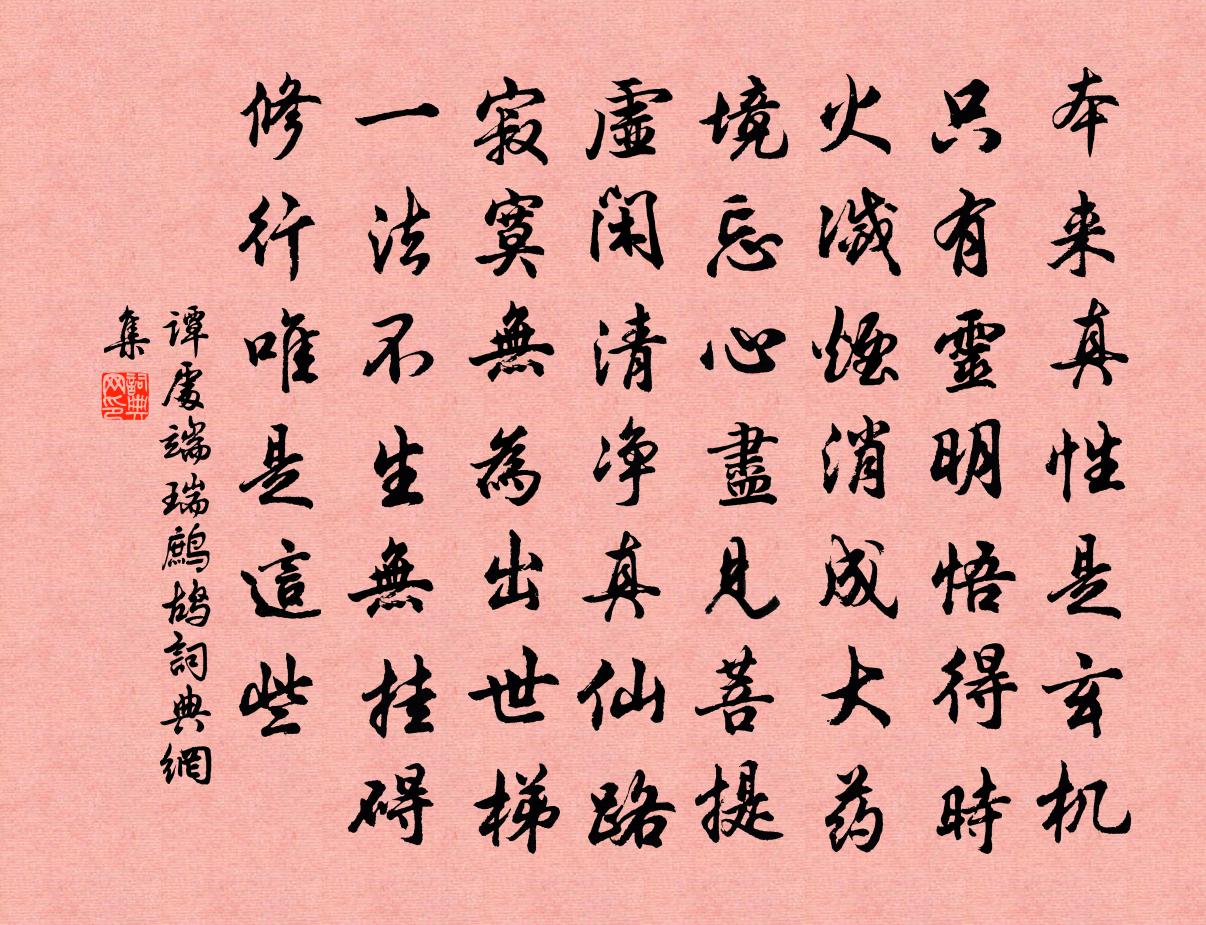 本来真性是玄机
只有靈明悟得時
火滅煙消成大药
境忘心盡見菩提
虛閑清净真仙路
寂寞無為出世梯
一法不生無挂碍
修行唯是這些
譚處端瑞鷓鴣詞典網
集
詞典
网印